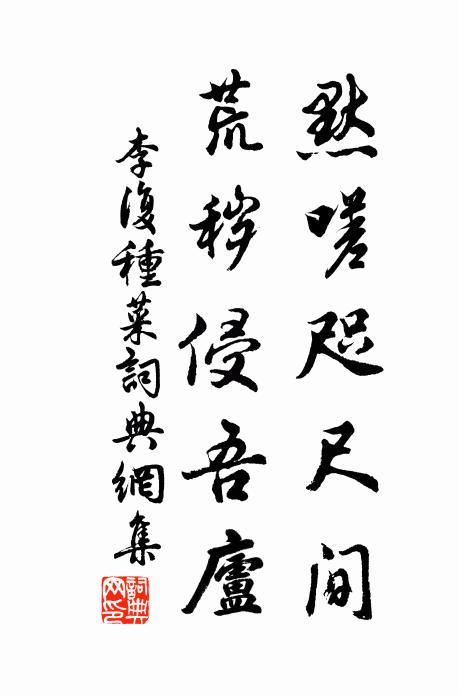 默嗟咫尺间
荒秽侵吾廬
李復種菜詞典網集
詞典网印